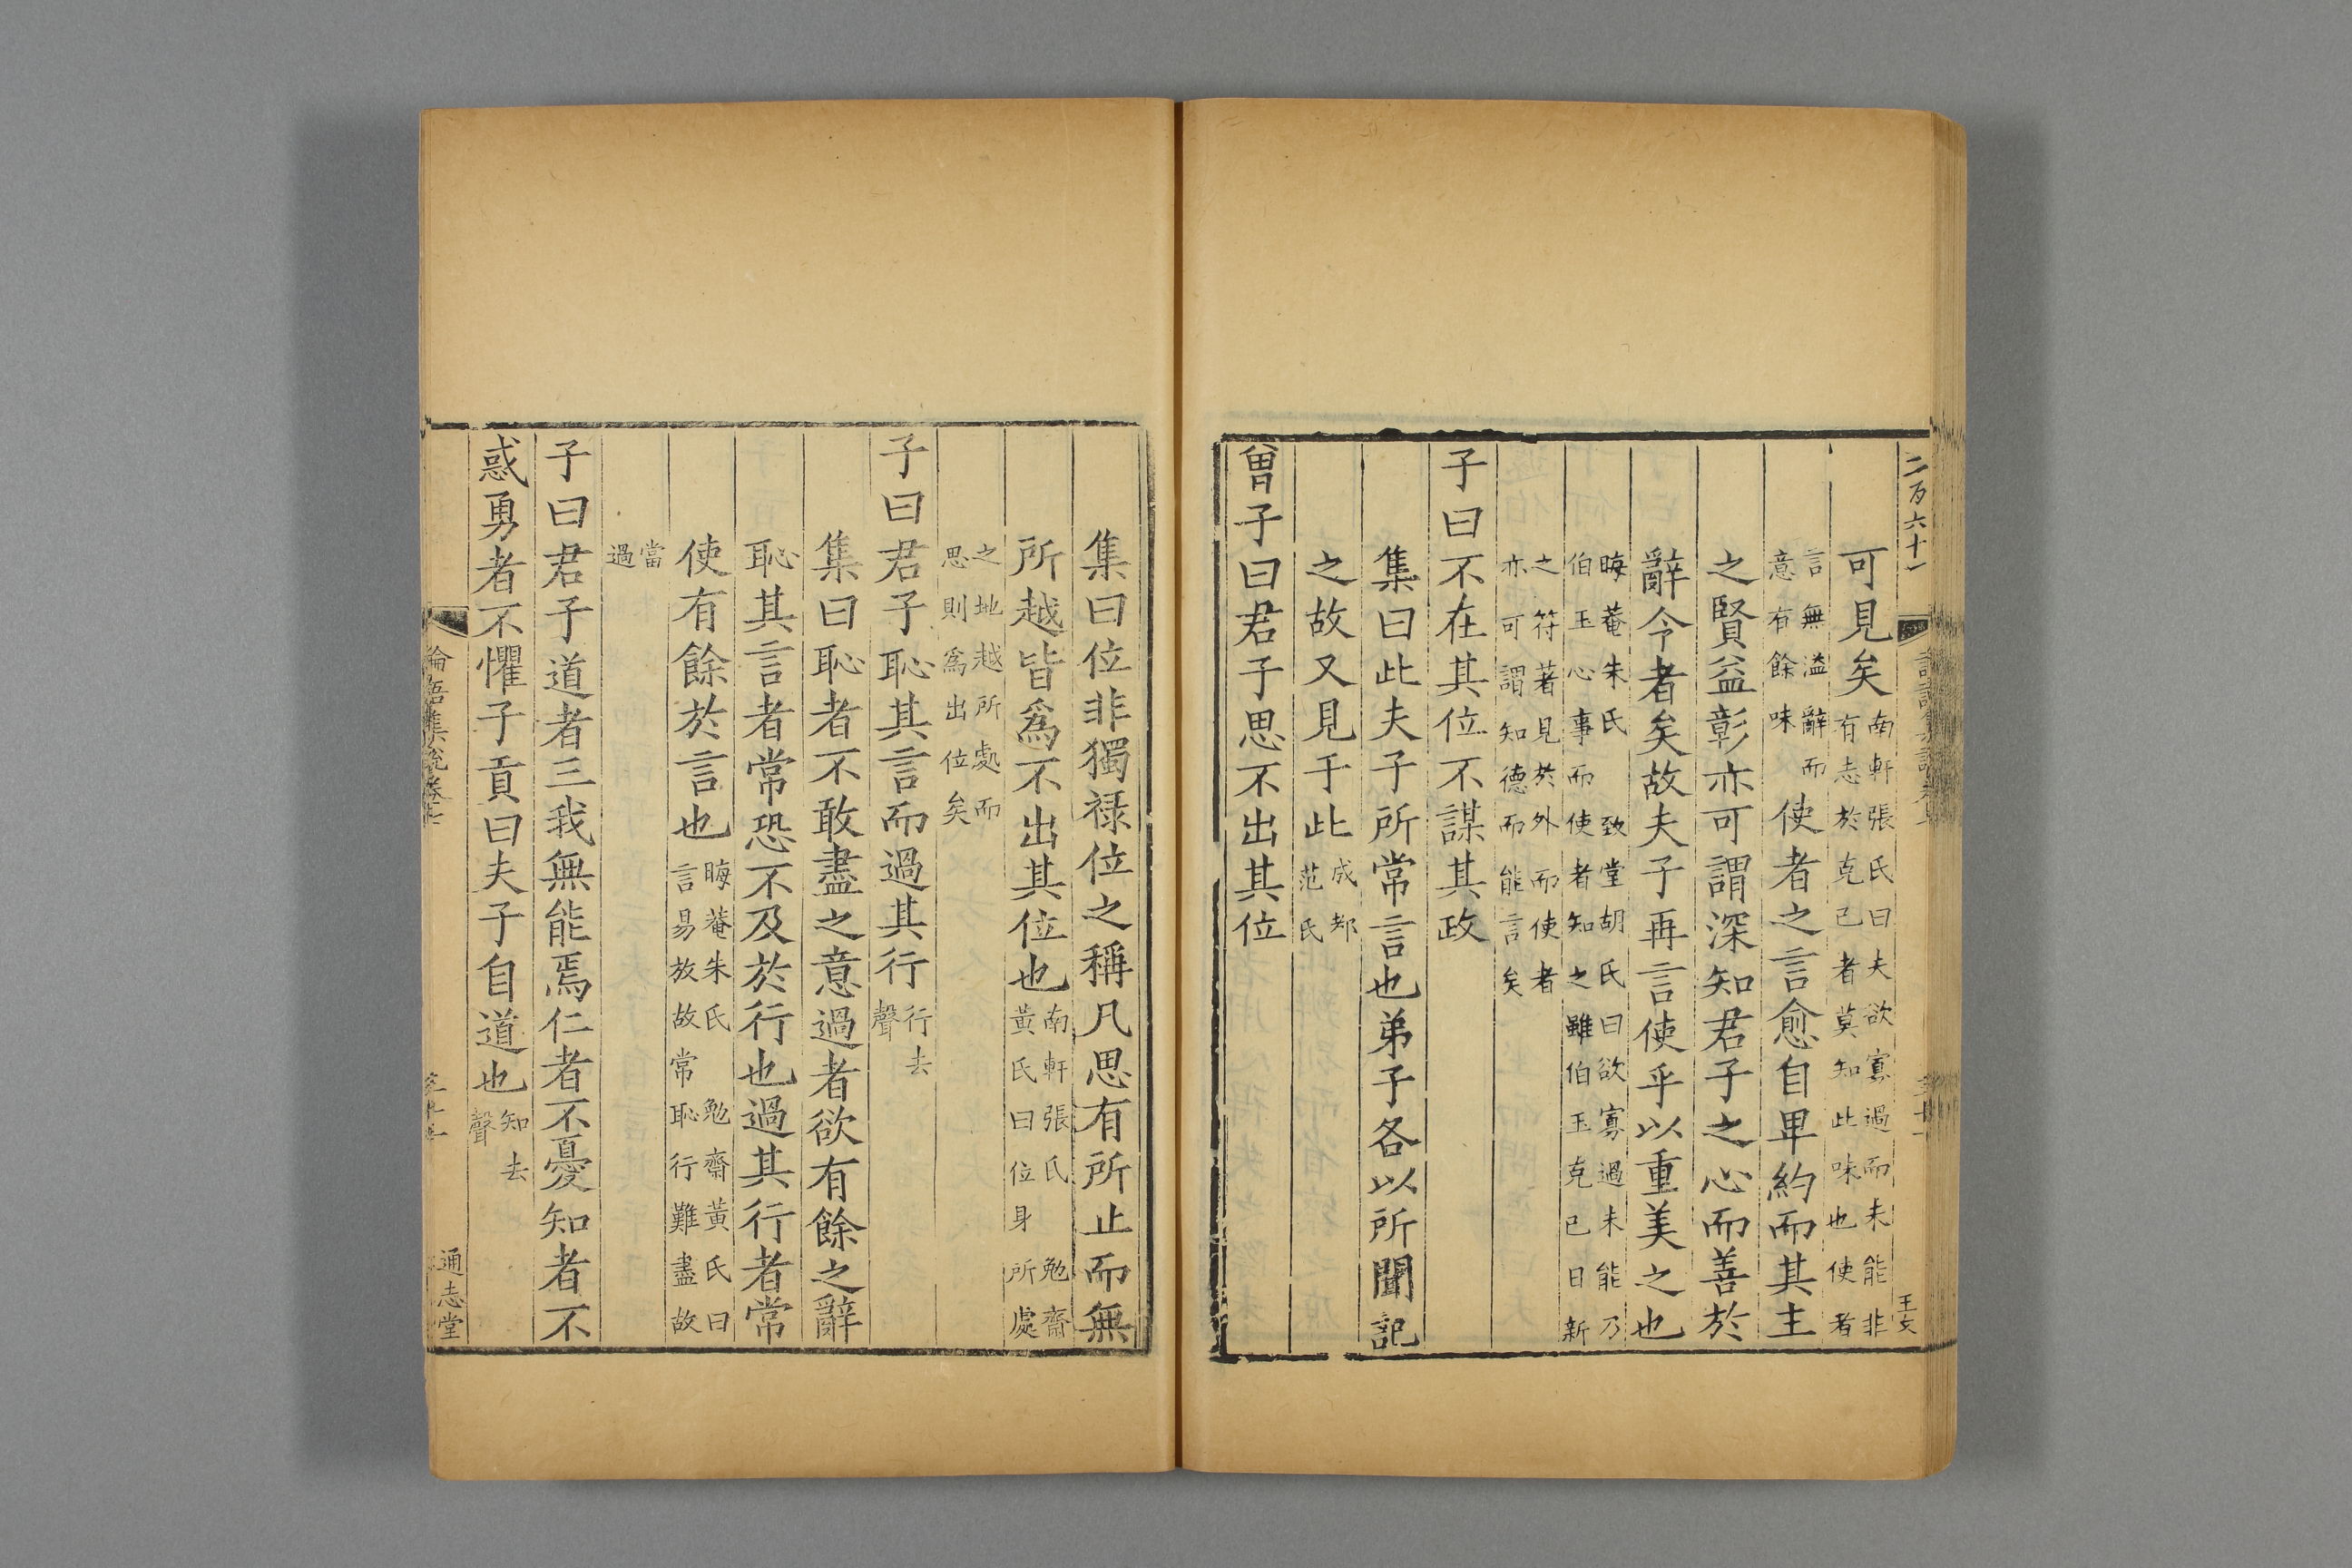 二百六十一
王文
可見矣南軒張氏曰夫欲寡過而未能非有志於克己者莫知此味也使者
言無溢辭而意有餘味使者之言愈自卑約而其主
之賢益彰亦可謂深知君子之心而善於
辭令者矣故夫子再言使乎以重美之也
晦菴朱氏致堂胡氏曰欲寡過未能乃伯玉心事而使者知之雖伯玉克已日新
之符著見於外而使者亦可謂知德而能言矣
子曰不在其位不謀其政
集曰此夫子所常言也弟子各以所聞記
之故又見于此成都范氏
曾子曰君子思不出其位
集曰位非獨祿位之稱凡思有所止而無
所越皆爲不出其位也南軒張氏勉齋黃氏曰位身所處
之地越所處而思則爲出位矣
子曰君子恥其言而過其行行去聲
集曰恥者不敢盡之意過者欲有餘之辭
恥其言者常恐不及於行也過其行者常
使有餘於言也晦菴朱氏勉齋黃氏曰言易放故常恥行難盡故
當過
子曰君子道者三我無能焉仁者不憂知者不
惑勇者不懼子貢曰夫子自道也知去聲
論語集說卷七
通志堂